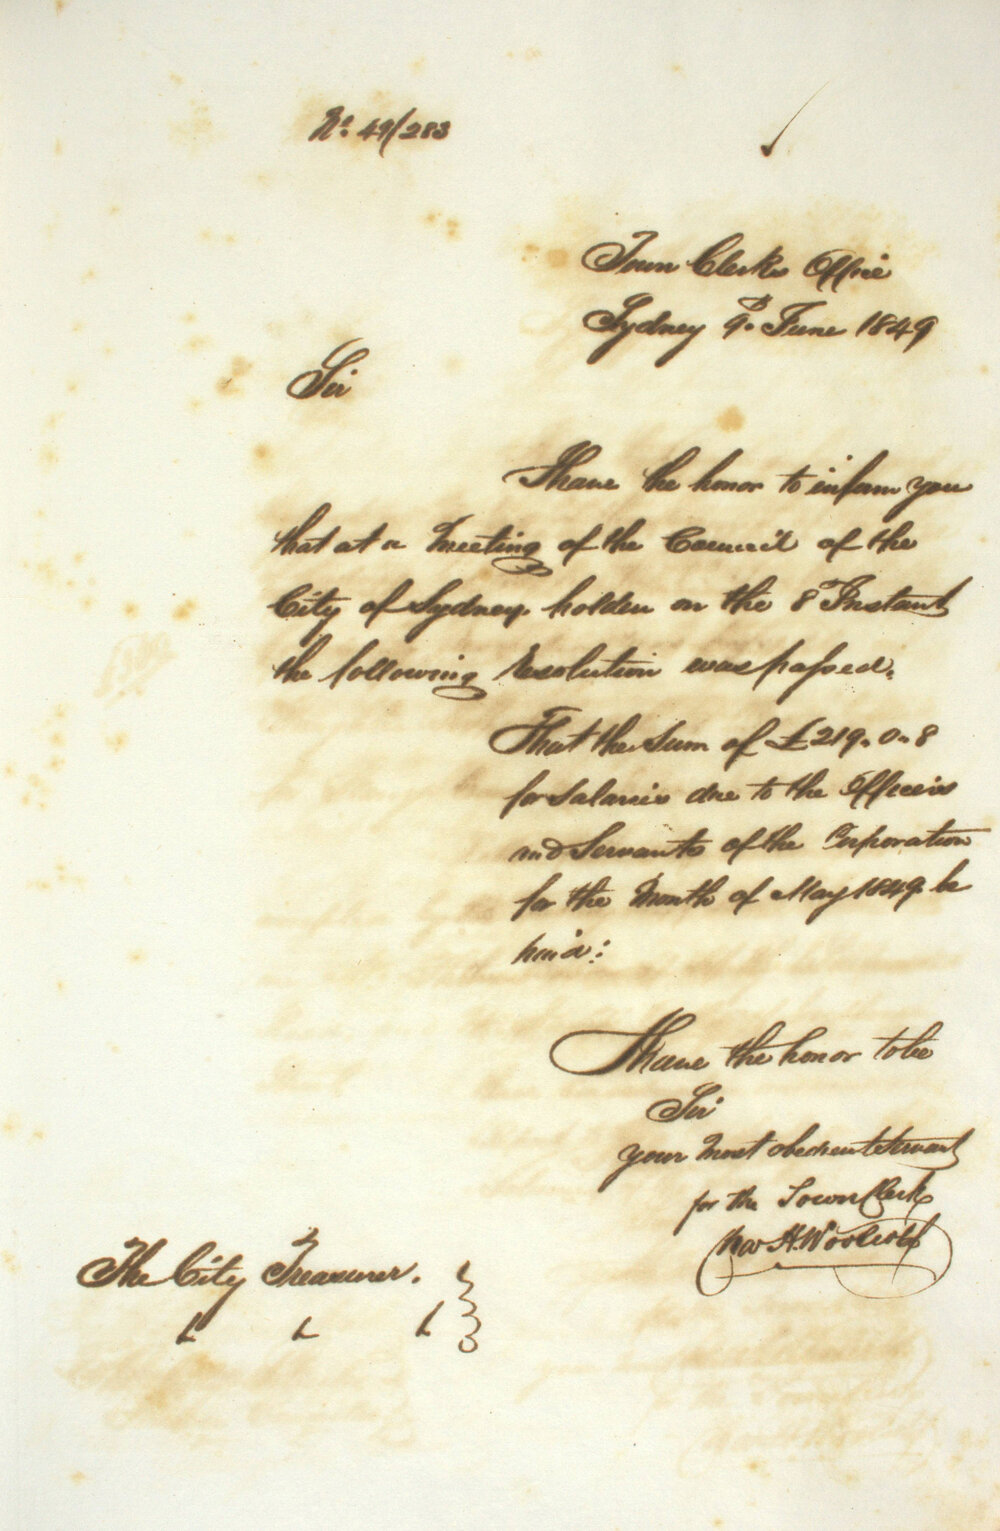 No. 49/283
Town Clerks Office
Sydney 9th June 1849
Sir
I have the honor to inform you
that at a Meeting of the Council of the
City of Sydney holden on the 8 Instant
the following Resolution was passed.
That the Sum of £219.0.8
for Salaries due to the Officers
and Servants of the Corporation
for the Month of May 1849 be
paid:
I have the honor to be
Sir
your Most obedient Servant
for the Town Clerk
Chas H. Woolcott
The City Treasurer.